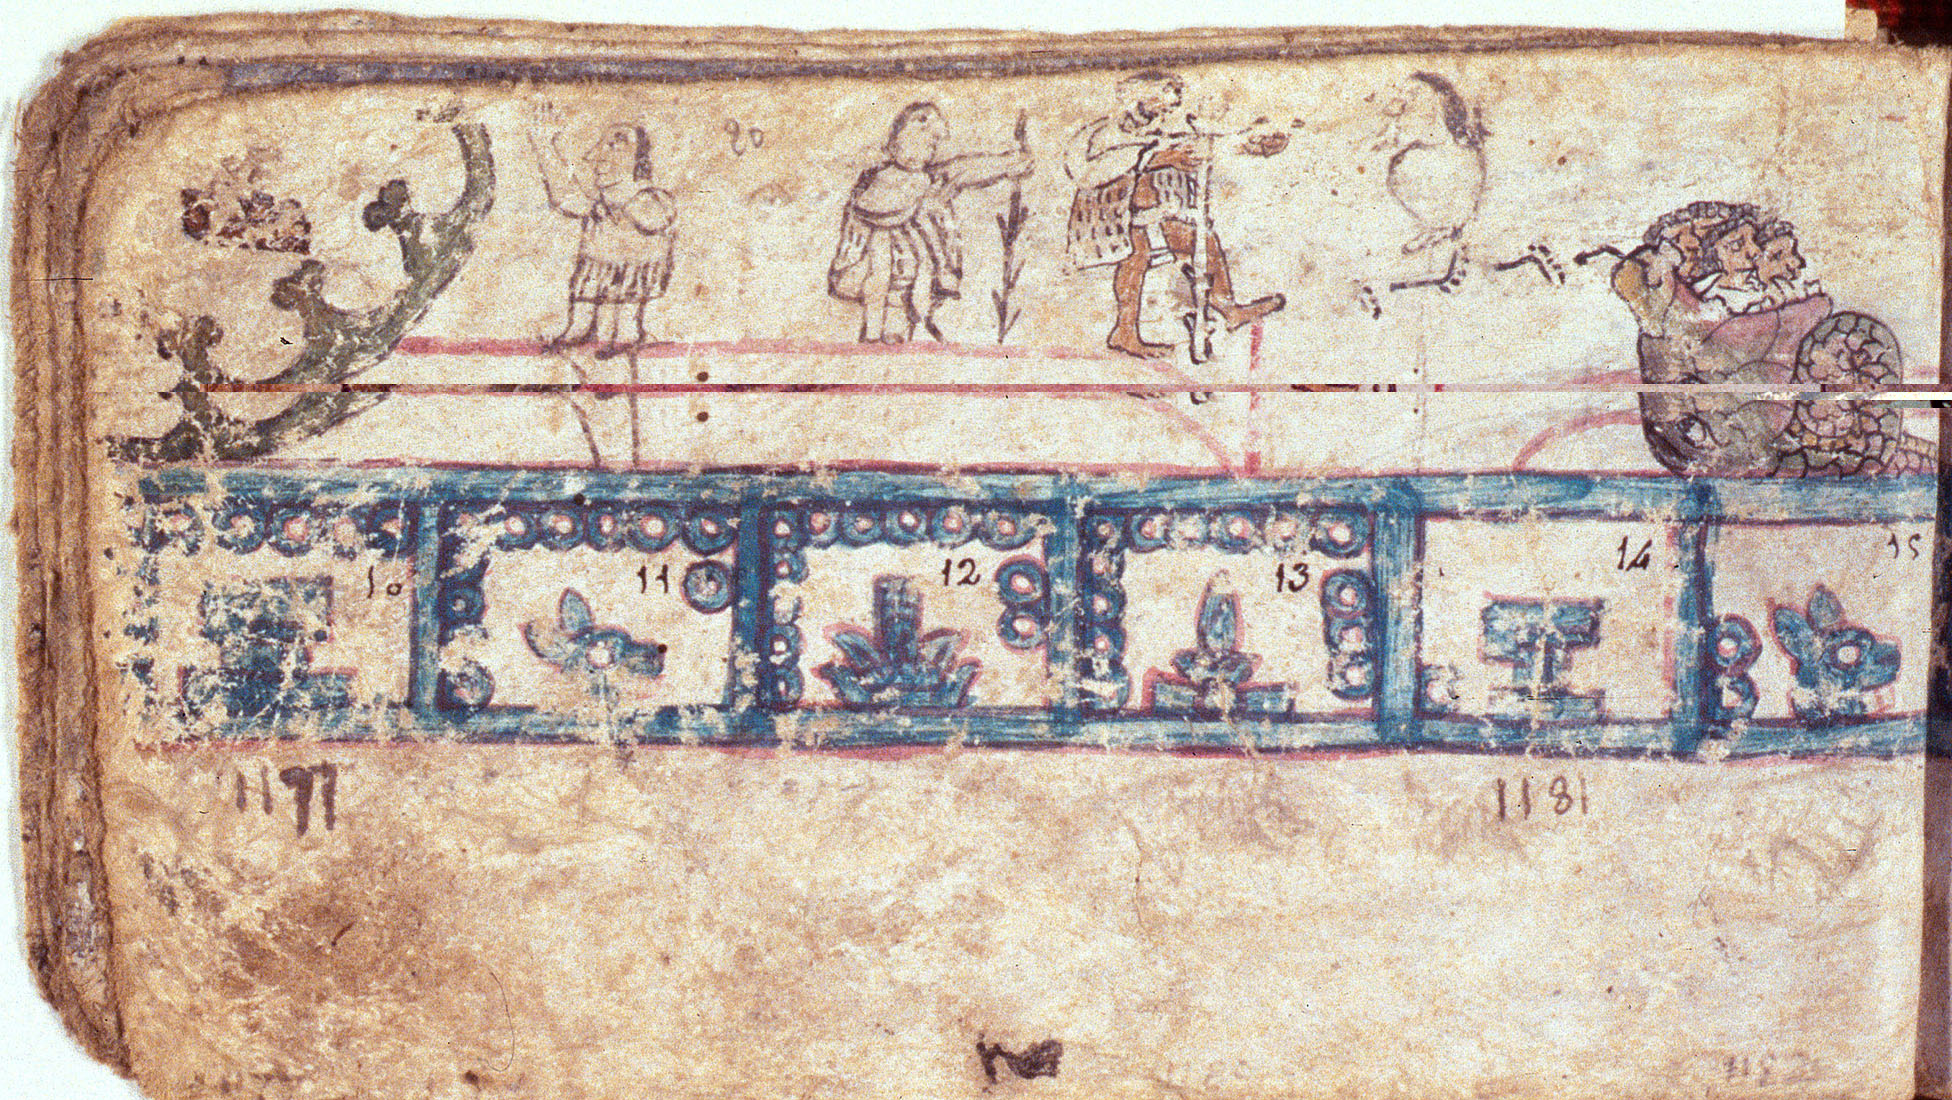 20
10 11 12 13 14 15
1177 1181